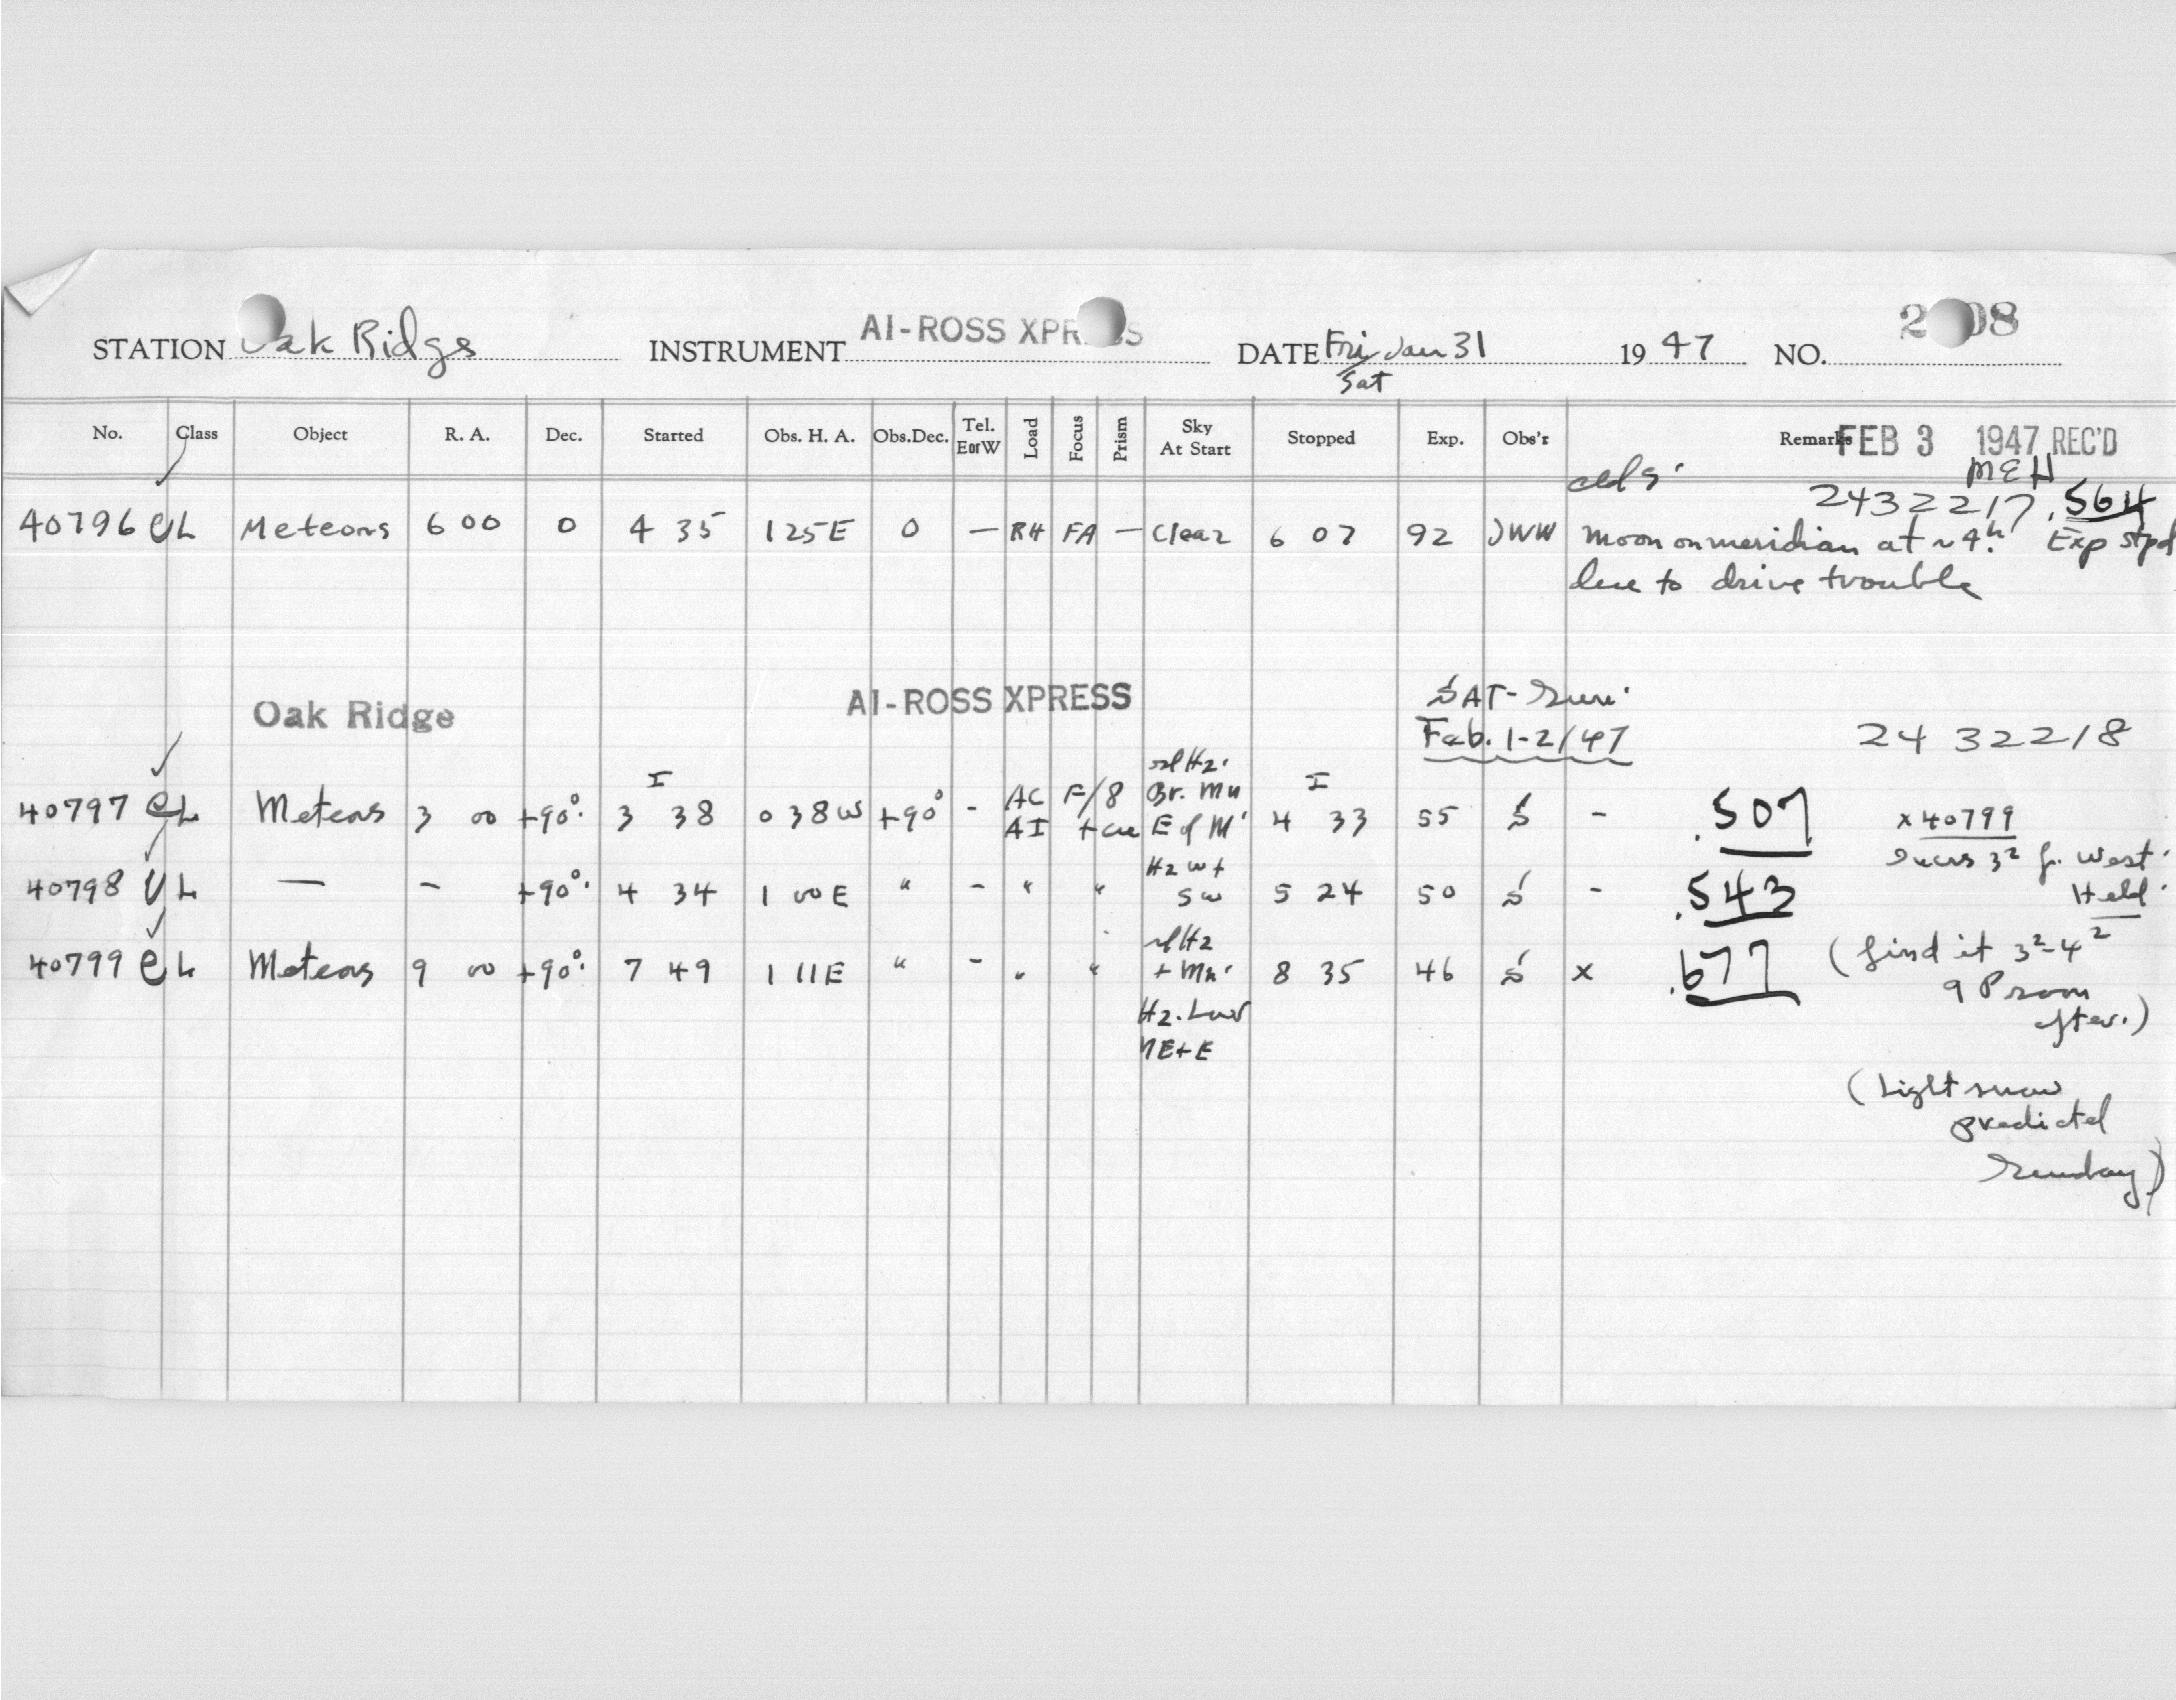 STATION Oak Ridge INSTRUMENT AI-ROSS XPRESS DATE Fri Jan 31 1947 NO. 2 08
Sat
No. Class Object R. A. Dec. Started Obs. H. A. Obs.Dec. Tel. EorW Load Focus Prism Sky At Start Stopped Exp. Obs'r Remarks FEB 3 1947 REC'D
MEH
2432217.564
40796 L Meteors 6 00 0 4 35 125E 0 — RH FA — Clear 6 07 92 JWW moon on meridian at ~4h. Exp stpd
due to drive trouble
Oak Ridge AI-ROSS XPRESS SAT-Sun.
Feb. 1-2/47 24 32218
40797 e L Meteors 3 00 +90° 3 I 38 0 38W +90° - AC AI F/8 Hz. Br. Mn E of M 4 I 33 55 S - .507 x 40799
40798 L — - +90° 4 34 1 00E " - " " Hz W + SW 5 24 50 S - .543 West. Held
40799 e L Meteors 9 00 +90° 7 49 1 11E " - " " Hz + Mn. 8 35 46 S x .677 (find it 3²-4²
9 P room
after.)
Hz. Low
NE+E
(Light snow
predicted
Sunday)